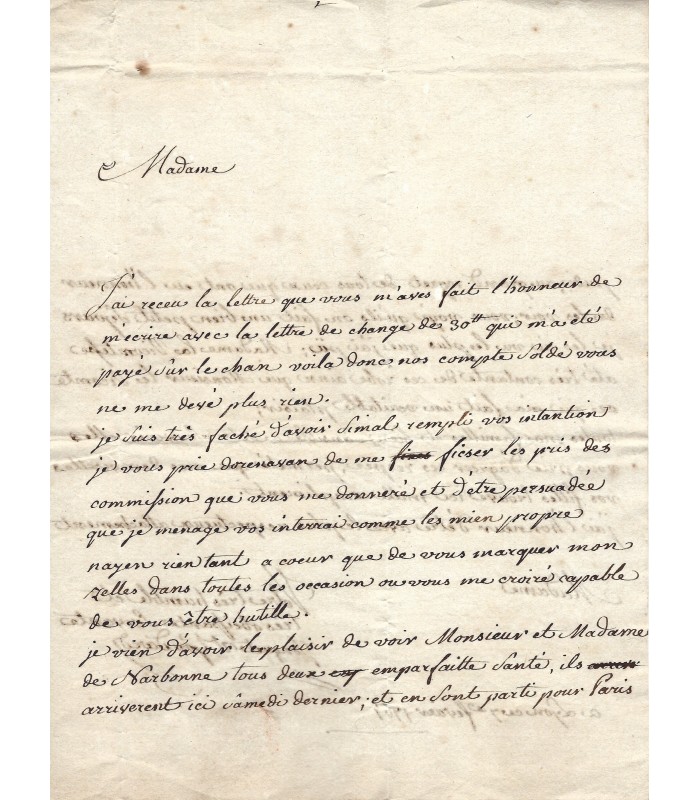 Madame
J'ai receu la lettre que vous m'aves fait l'honneur de
m'écrire avec la lettre de change de 30tt qui m'a été
payé sur le chan voila donc nos compte soldé vous
ne me devé plus rien.
je suis très faché d'avoir simal rempli vos intantion
je vous prie dorenavan de me ficser les pris des
commission que vous me donneré et d'être persuadée
que je menage vos interrai comme les mien propre
nayen rien tant a coeur que de vous marquer mon
zelles dans toutes les occasion ou vous me croiré capable
de vous être hutille.
je vien d'avoir leplaisir de voir Monsieur et Madame
de Narbonne tous deux emparfaitte santé, ils
arriverent ici samedi dernier; et en sont parti pour Paris